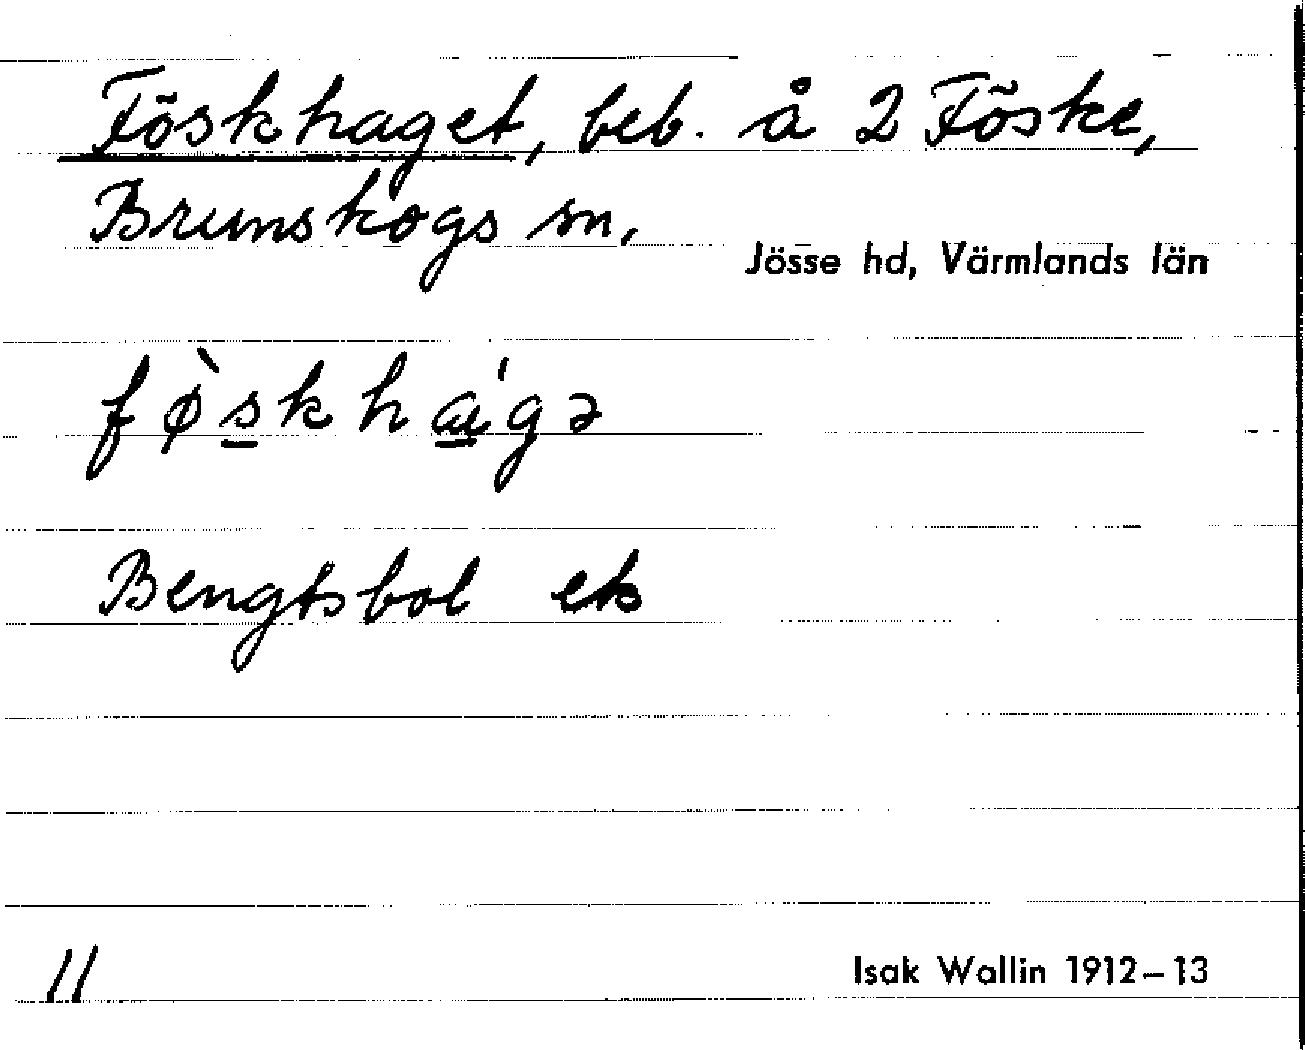 Föskhaget, beb. å 2 Föske,
Brunskogs sn,
Jösse hd, Värmlands län
fø̀s̲kha̲'gə
Bengtsbol ek
11
Isak Wallin 1912–13